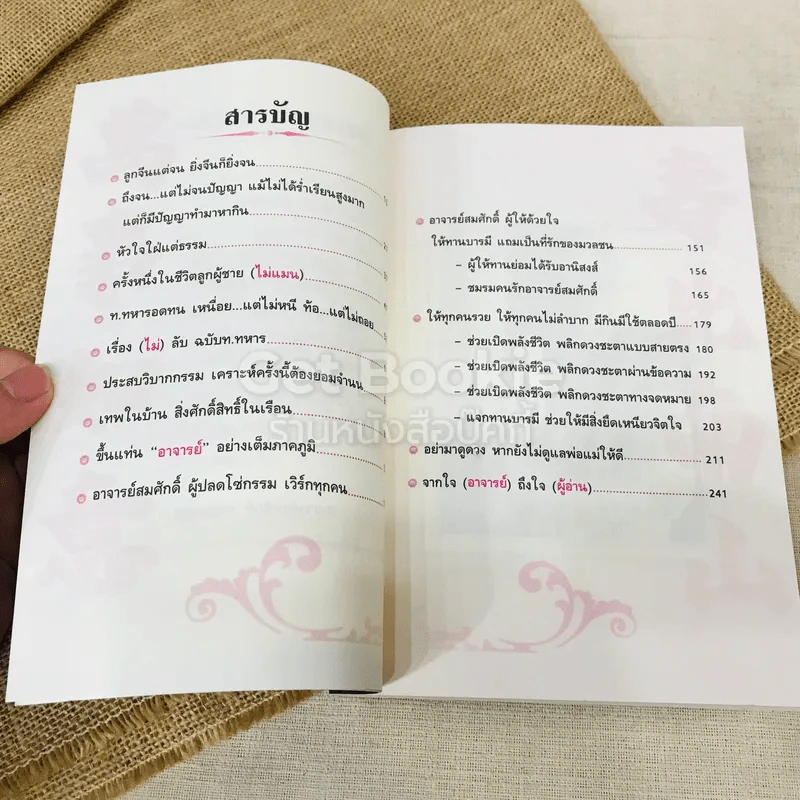 สารบัญ
ลูกจีนแต่จน ยิ่งจีนก็ยิ่งจน
ถึงจน...แต่ไม่จนปัญญา แม้ไม่ได้ร่ำเรียนสูงมาก
แต่ก็มีปัญญาทำมาหากิน
หัวใจใฝ่แต่ธรรม
ครั้งหนึ่งในชีวิตลูกผู้ชาย (ไม่แมน)
ท.ทหารอดทน เหนื่อย...แต่ไม่หนี ท้อ...แต่ไม่ถอย
เรื่อง (ไม่) ลับ ฉบับท.ทหาร
ประสบวิบากกรรม เคราะห์ครั้งนี้ต้องยอมจำนน
เทพในบ้าน สิ่งศักดิ์สิทธิ์ในเรือน
ขึ้นแท่น “อาจารย์” อย่างเต็มภาคภูมิ
อาจารย์สมศักดิ์ ผู้ปลดโซ่กรรม เวิร์กทุกคน
อาจารย์สมศักดิ์ ผู้ให้ด้วยใจ
ให้ทานบารมี แถมเป็นที่รักของมวลชน 151
- ผู้ให้ทานย่อมได้รับอานิสงส์ 156
- ชมรมคนรักอาจารย์สมศักดิ์ 165
ให้ทุกคนรวย ให้ทุกคนไม่ลำบาก มีกินมีใช้ตลอดปี 179
- ช่วยเปิดพลังชีวิต พลิกดวงชะตาแบบสายตรง 180
- ช่วยเปิดพลังชีวิต พลิกดวงชะตาผ่านข้อความ 192
- ช่วยเปิดพลังชีวิต พลิกดวงชะตาทางจดหมาย 198
- แจกทานบารมี ช่วยให้มีสิ่งยึดเหนี่ยวจิตใจ 203
อย่ามาดูดวง หากยังไม่ดูแลพ่อแม่ให้ดี 211
จากใจ (อาจารย์) ถึงใจ (ผู้อ่าน) 241
Get Bookie
ร้านหนังสือบุ๊คกี้